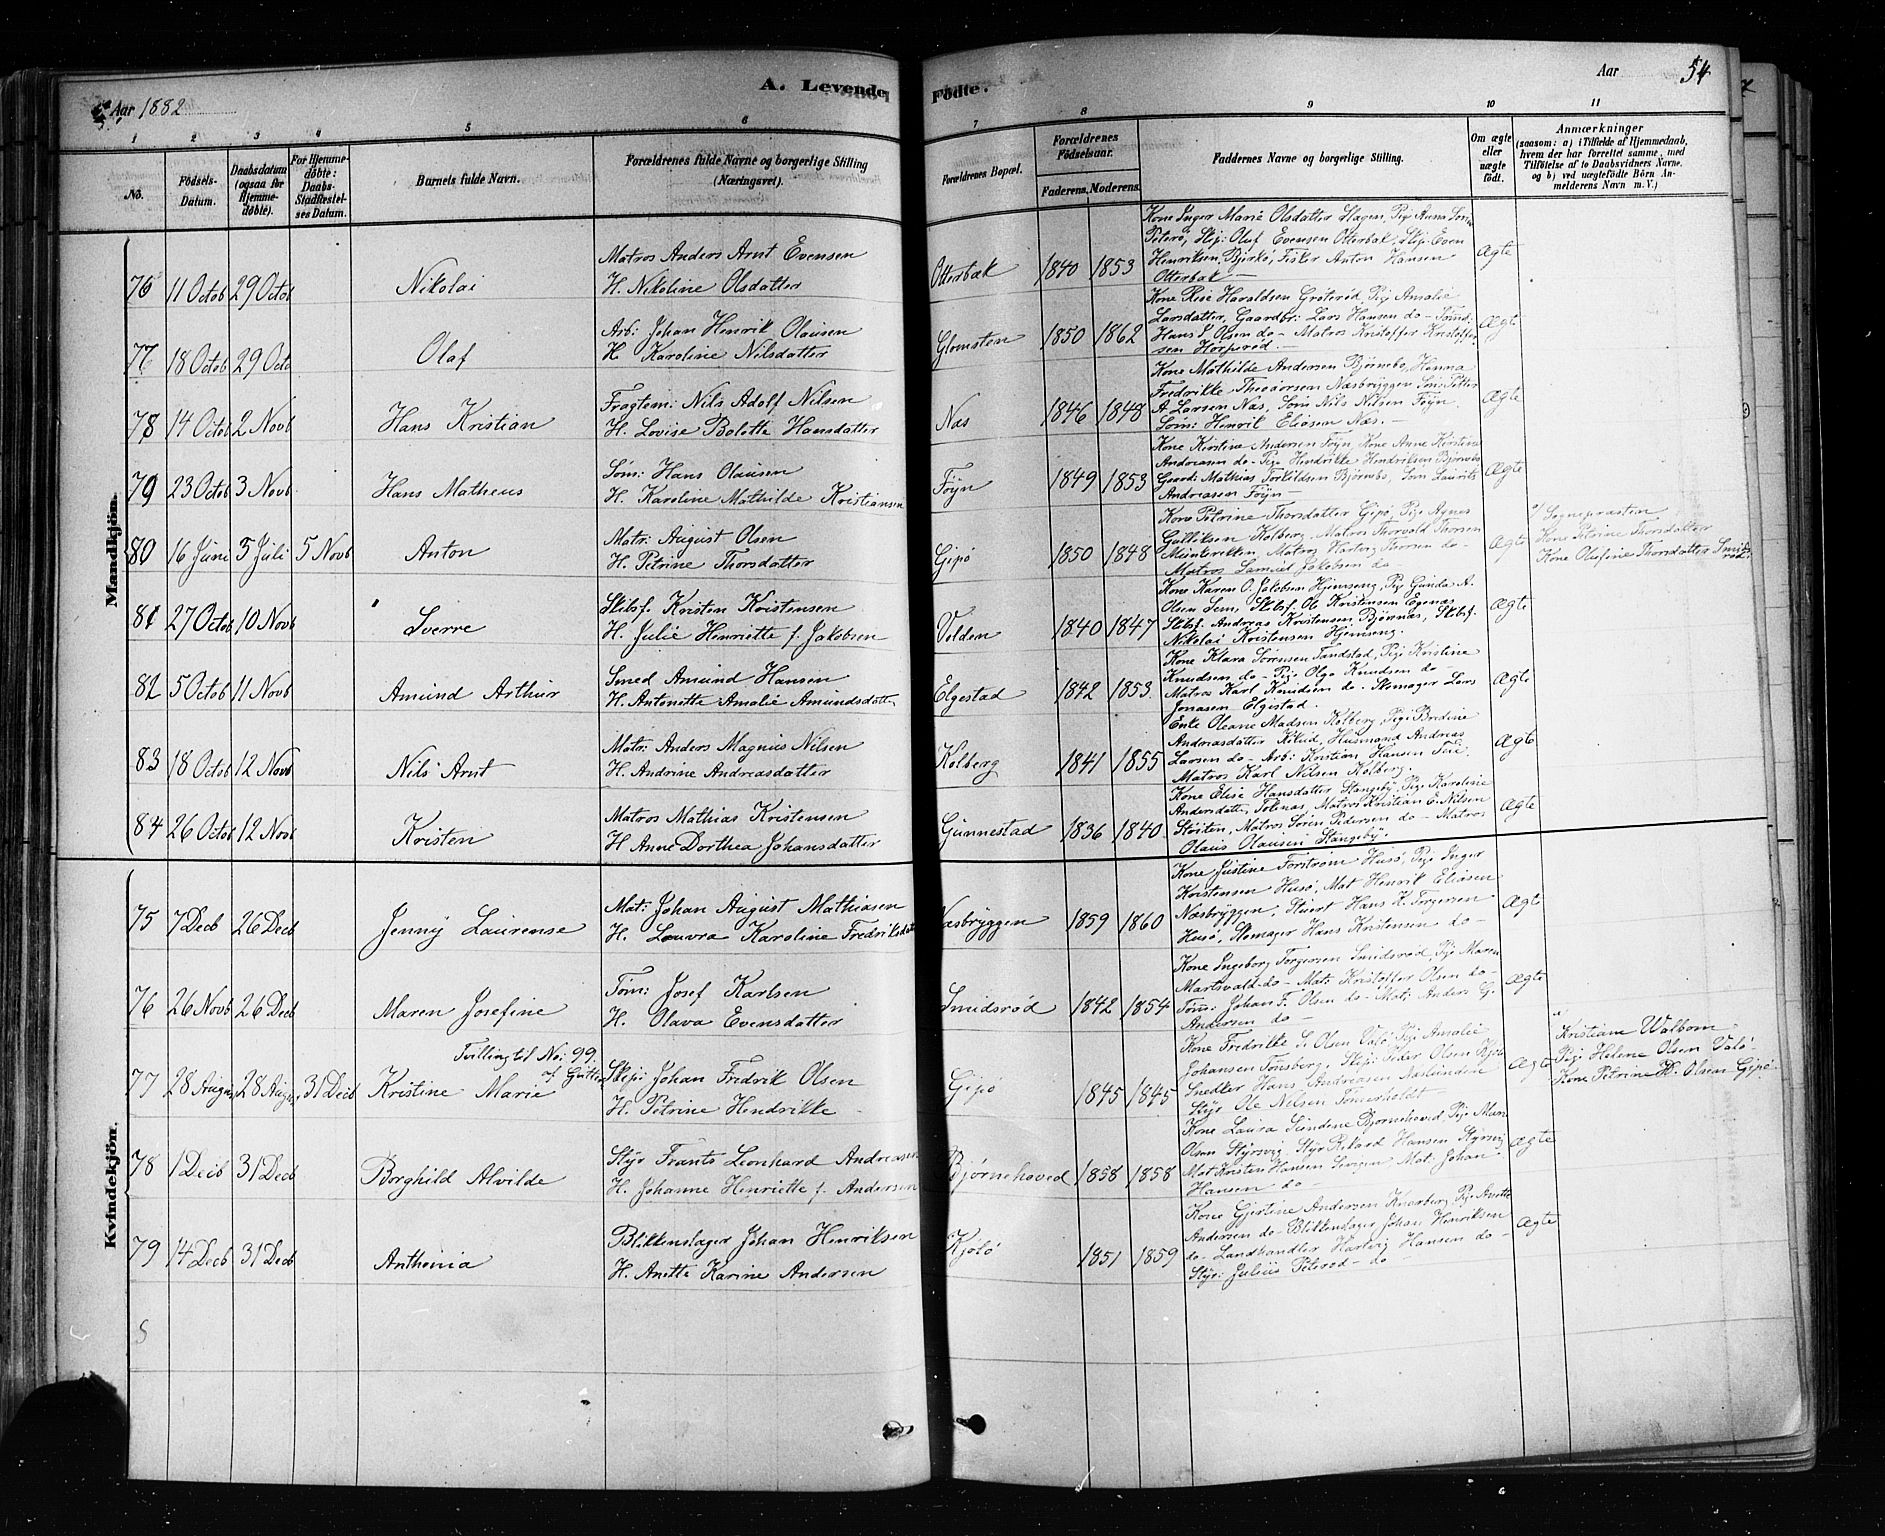 Aar 1882
A. Levende Fødte.
Aar 54
1 2 3 4 5 6 7 8 9 10 11
No.
Fødsels-Datum.
Daabsdatum (ogsaa for Hjemmedøbte).
For Hjemmedøbte: Daabs-Stadfæstelses Datum.
Barnets fulde Navn.
Forældrenes fulde Navne og borgerlige Stilling (Næringsvei).
Forældrenes Bopæl.
Forældrenes Fødselsaar.
Faderens. Moderens.
Faddernes Navne og borgerlige Stilling.
Om ægte eller uægte født.
Anmærkninger (saasom: a) i Tilfælde af Hjemmedaab, hvem der har forrettet samme, med Tilføielse af to Daabsvidners Navne, og b) ved uægtefødte Børn Anmelderens Navn m. V.)
Mandkjøn.
76 11 Octob 29 Octob Nikolai
Matros Anders Arnt Evensen
H. Nikoline Olsdatter
Otterbæk 1840 1853
Kone Inger Marie Olsdatter Hagen, Pige Anna Sørin
Peterø, Skip: Oluf Evensen Otterbæk, Skip: Even
Henriksen Bjerkø, Fisker Anton Hansen
Otterbæk
Ægte
77 18 Octob 29 Octo Olaf
Arb: Johan Henrik Olausen
H. Karoline Nilsdatter
Glomsten 1850 1862
Kone Rise Haraldsen Grøterød, Pige Amalie
Larsdatter, Gaardbr: Lars Hansen do - Sømd:
Hans L Olsen do - Matros Kristoffer Kristoffer-
sen Horperød.
Ægte
78 14 Octob 2 Novb Hans Kristian
Fragtem: Nils Adolf Nilsen
H. Lovise Bolette Hansdatter
Næs 1846 1848
Kone Mathilde Andersen Bjørnebo, Hanna
Fredrikke Theodorsen Næsbryggen Søm: Petter
A Larsen Næs, Søm Nils Nilsen Føyn.
Søm: Henrik Eliasen Næs.
Ægte
79 23 Octob 3 Novb Hans Matheus
Søm: Hans Olausen
H. Karoline Mathilde Kristiansen
Føyn 1849 1853
Kone Kirstine Andersen Føyn, Kone Anne Kirstine
Andreasen do - Pige Hendrikke Hendriksen Bjørnebo
Gaard: Mathias Torkildsen Bjørnebo, Søm Laurits
Andreasen Føyn
Ægte
80 16 Juni 5 Juli 5 Novb Anton
Matr: August Olsen
H. Petrine Thorsdatter
Gipø 1850 1848
Kone Petrine Thorsdatter Gipø, Pige Agnes
Gulliksen Kolberg, Matros Thorvald Thorsen
Munterekken, Matros Hartvig Thorsen do -
Matros Samuel Jakobsen do
Ægte
a/ Sognepræsten
Kone Petrine Thorsdatter
Kone Olufine Thorsdatter Smidsrød.
81 27 Octob 10 Novb Sverre
Skibsf. Kristen Kristensen
H. Julie Henriette f. Jakobsen
Volden 1840 1847
Kone Karen O. Jakobsen Hjemseng, Pige Gunda A.
Olsen Sem, Skibsf. Ole Kristensen Egenæs
Skibsf. Andreas Kristensen Bjørnæs, Skibsf.
Nikolai Kristensen Hjemseng.
Ægte
82 5 Octob 11 Novb Amund Arthur
Smed Amund Hansen
H. Antonette Amalie Amundsdatte
Elgestad 1842 1853
Kone Klara Sørensen Tandstad, Pige Kristine
Knudsen do - Pige Olga Knudsen do -
Matros Karl Knudsen do. Skomager Lars
Jonasen Elgestad.
Ægte
83 18 Octob 12 Novb Nils Arnt
Matr: Anders Magnus Nilsen
H. Andrine Andreasdatter
Kolberg 1841 1855
Enke Oleane Madsen Kolberg, Pige Bredine
Andreasdatter Kilud, Husmand Andreas
Larsen do - Arb: Kristian Hansen Teie
Matros Karl Nilsen Kolberg.
Ægte
84 26 Octob 12 Novb Kristen
Matros Mathias Kristensen
H. Anne Dorthea Johansdatter
Gunnestad 1836 1840
Kone Elise Hansdatter Stangeby, Pige Karoline
Andersdatter Tolnæs, Matros Kristian E. Nilsen
Støiten, Matros Søren Pedersen do - Matros
Olaus Olausen Stangeby.
Ægte
Kvindekjøn.
75 7 Decb 26 Decb Jenny Laurense
Mat: Johan August Mathiasen
H. Louvra Karoline Fredriksdat
Næsbryggen 1859 1860
Kone Justine Forstrøm Husø, Pige Inger
Kristensen Husø, Mat Henrik Eliasen
Næsbryggen, Stuert Hans K. Torgersen
Husø, Skomager Hans Kristensen do -
Ægte
76 26 Novb 26 Decb Maren Josefine
Tøm: Josef Karlsen
H. Olava Evensdatter
Smidsrød 1842 1854
Kone Ingeborg Torgersen Smidsrød, Pige Maren
Martsvald do - Mat: Kristoffer Olsen do -
Tøm: Johan F. Olsen do - Mat: Anders G.
Andersen do -
Ægte
Tvilling til No: 99. af Gutter
77 28 Aug 28 Aug 31 Decb Kristine Marie
Skip: Johan Fredrik Olsen
H. Petrine Hendrikke
Gipø 1845 1845
Kone Fredrikke L. Olsen Valø, Pige Amalie
Johansen Tønsberg, Skip: Peder Olsen Kjøl
Snedker Hans Andreasen Næslundin
Styr Ole Nilsen Sømerholdt
Ægte
a/ Kristiane Walbom
Pige Helene Olsen Valø
Kone Petrine H. Olsen Gipø
78 1 Decb 31 Decb Borghild Alvilde
Styr Frants Leonhard Andreasen
H. Johanne Henriette f. Andersen
Bjørnehoved 1858 1858
Kone Laura Sundene Bjørnehoved, Pige Maren
Olsen Styrsvig, Styr Rikard Hansen Styrsvig
Mat Kristen Hansen Mat: Johan
Hansen do
Ægte
79 14 Decb 31 Decb Anthonia
Blikkenslager Johan Henriksen
H. Anette Karine Andersen
Kjøló 1851 1859
Kone Gjertine Andersen Knarberg, Pige Anette
Andersen do - Blikkenslager Johan Henriksen
do - Landhandler Hartvig Hansen do -
Styr: Julius Peterød - do
Ægte
8